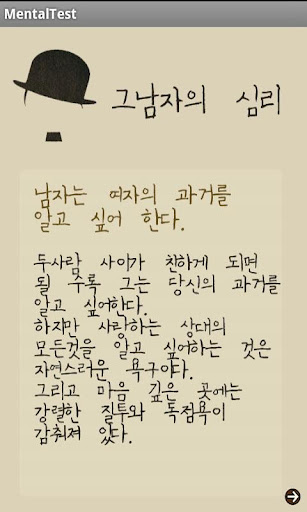 MentalTest
그남자의 심리
남자는 여자의 과거를
알고 싶어 한다.
두사람 사이가 친하게 되면
될 수록 그는 당신의 과거를
알고 싶어한다.
하지만 사랑하는 상대의
모든것을 알고 싶어하는 것은
자연스러운 욕구이다.
그리고 마음 깊은 곳에는
강렬한 질투와 독점욕이
감춰져 있다.